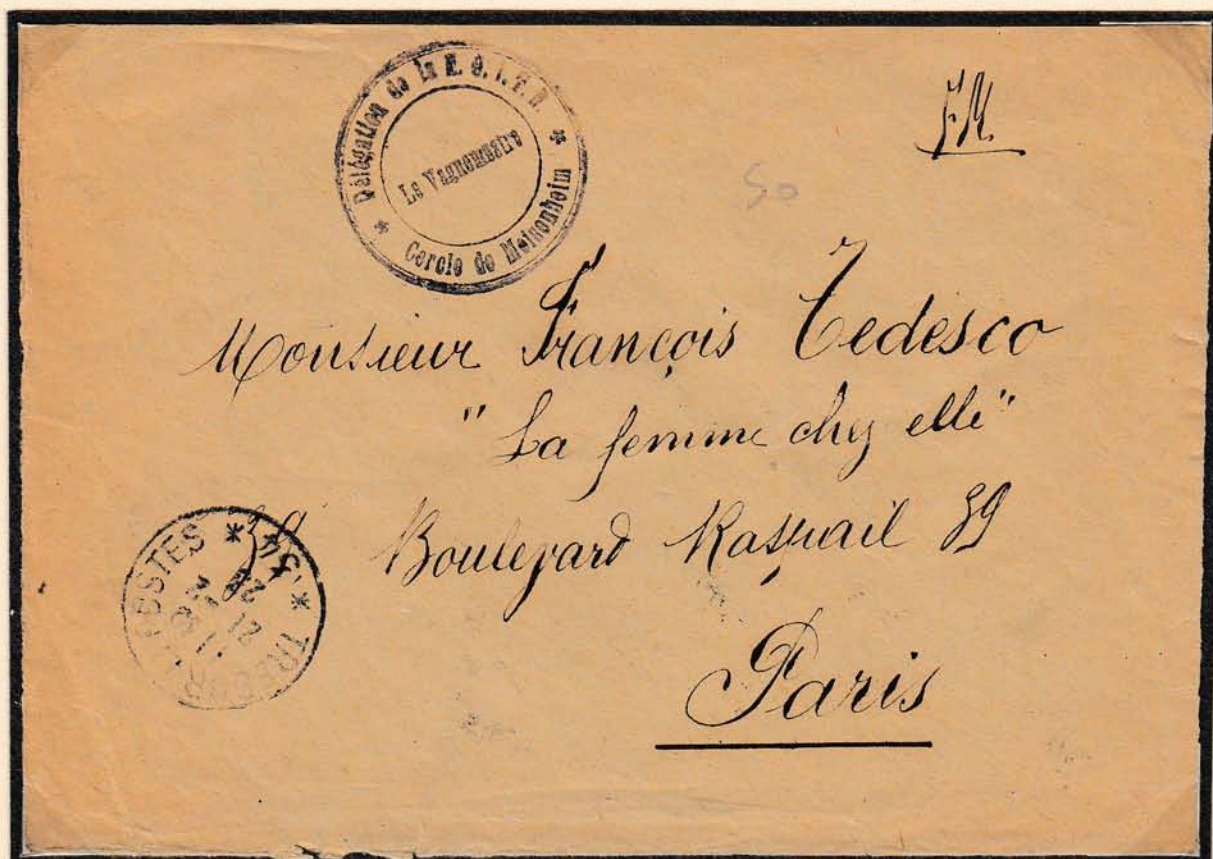 Délégation de la H. C. I. T. R.
Le Vaguemestre
Cercle de Meisenheim
F.M.
50
Monsieur François Tedesco
"La femme chez elle"
Boulevard Raspail 39
Paris
TRESOR ET POSTES * 344 *